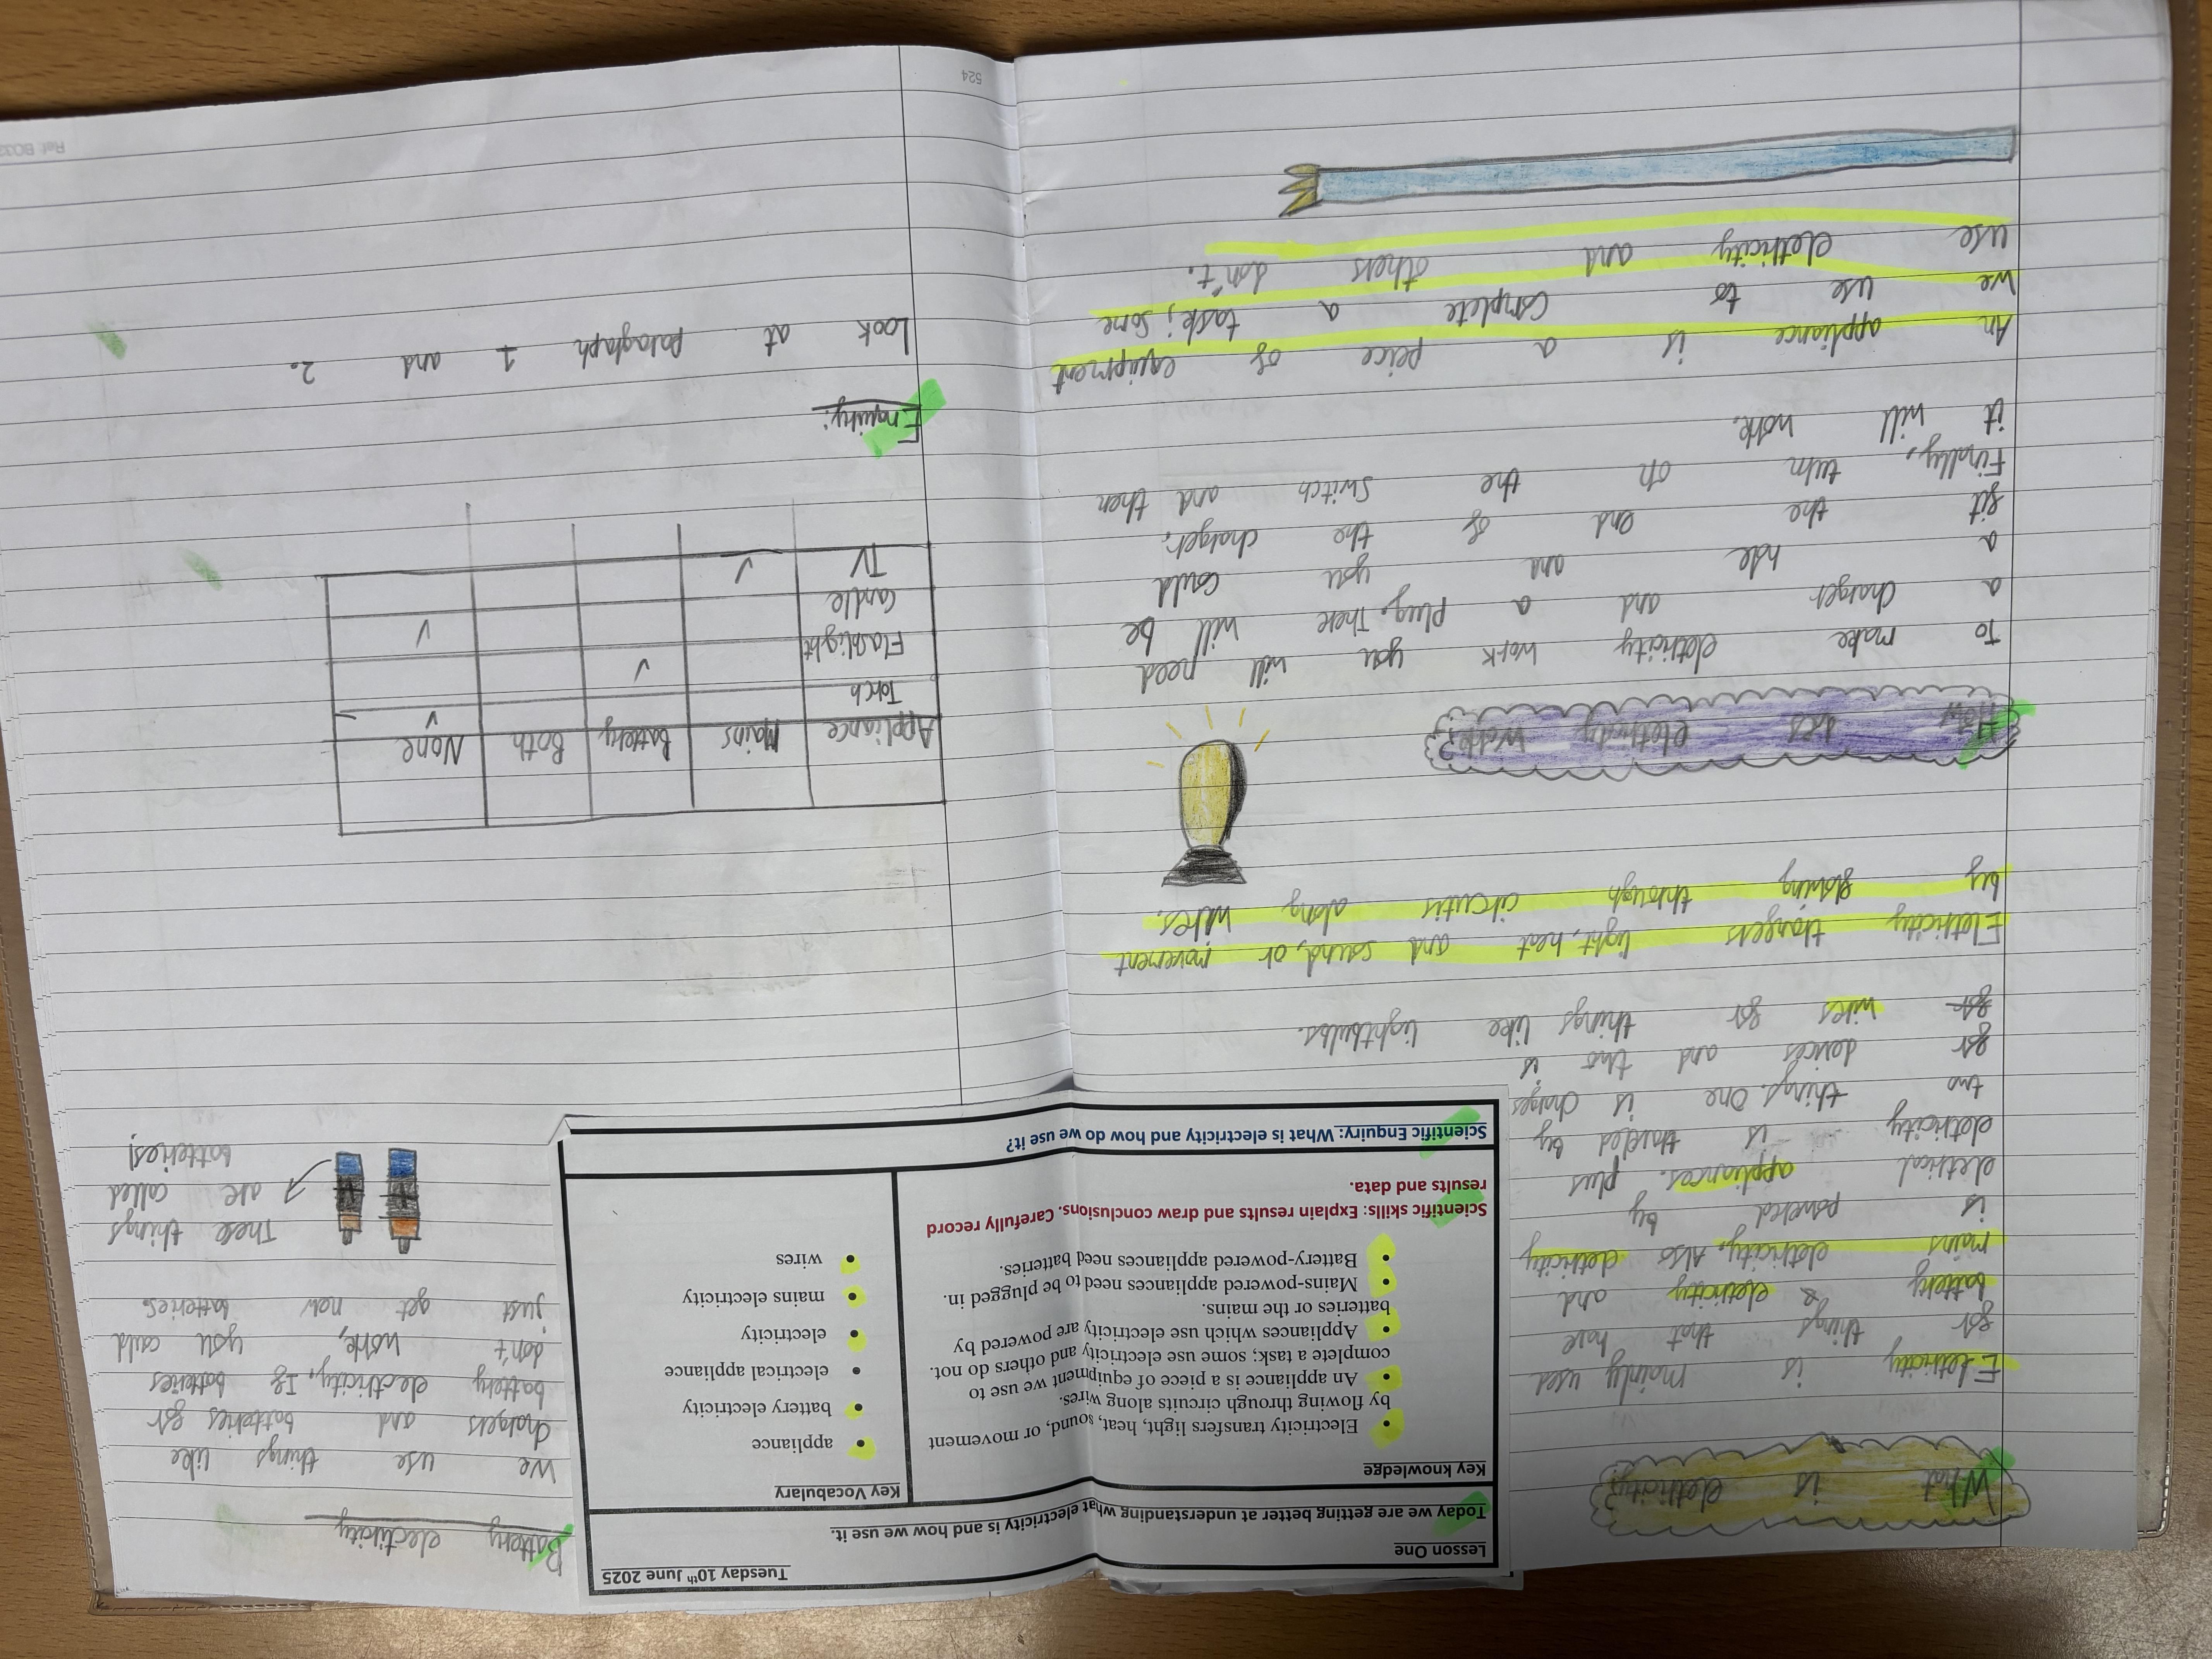 What is eletricity?
Eletricity is mainly used
for things that have
battery & eletricity and
mains eletricity, Also eletricity
is powered by
eletrical appliances. plus
eletricity is traveled by
two things. One is charges
for devices and two is
for wires for things like lightbulbs.
Eletricity transfers light, heat and sound, or movement
by flowing through circuits along wires.
How does eletricity work?
To make eletricity work you will need
a charger and a plug. There will be
a hole and you could
fit the end of the charger.
Finally, turn on the switch and then
it will work.
An appliance is a peice of equipment
we use to complete a task; some
use eletricity and others don't.
Lesson One
Tuesday 10th June 2025
Today we are getting better at understanding what electricity is and how we use it.
Key knowledge
• Electricity transfers light, heat, sound, or movement
by flowing through circuits along wires.
• An appliance is a piece of equipment we use to
complete a task; some use electricity and others do not.
• Appliances which use electricity are powered by
batteries or the mains.
• Mains-powered appliances need to be plugged in.
• Battery-powered appliances need batteries.
Scientific skills: Explain results and draw conclusions. Carefully record
results and data.
Key Vocabulary
• appliance
• battery electricity
• electrical appliance
• electricity
• mains electricity
• wires
Scientific Enquiry: What is electricity and how do we use it?
Battery electiricity
We use things like
chargers and batteries for
battery electricity, If batteries
don't work, you could
just get new batteries.
These things
are called
batteries!
Appliance Mains Battery Both None
Torch ✓
Flashlight ✓
Candle ✓
TV ✓
Enquiry:
Look at paragraph 1 and 2.
524